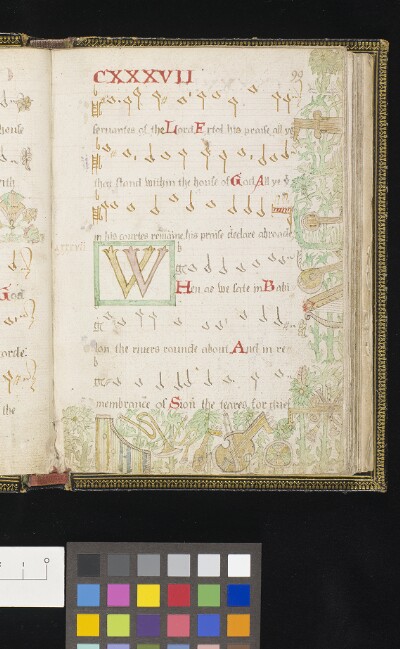 CXXXVII
99
servantes of the Lord Extol his praise all ye
that stand within the house of God All ye
in his courtes remaine his praise declare abroade
W
Hen as we sate in Babi
lon the rivers rounde about And in re
membrance of Sion the teares for grief
house
God
the